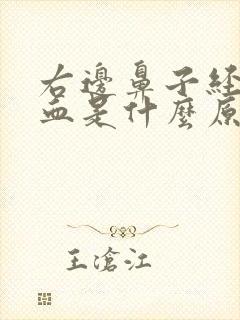 右邊鼻子経
血是什麼原
王滄江